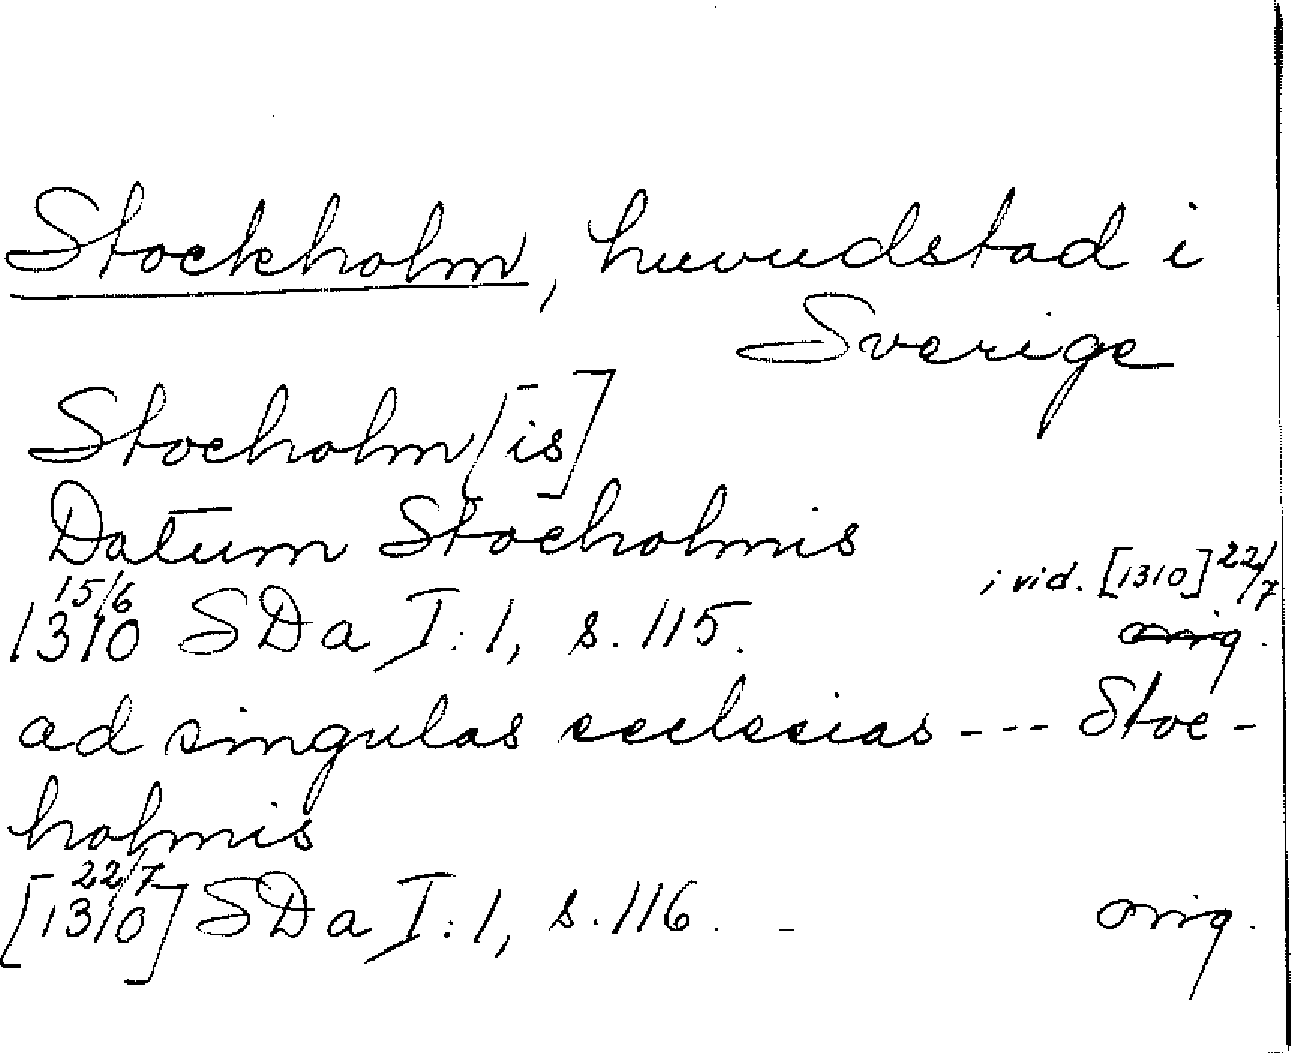 Stockholm, huvudstad i
Sverige
Stocholm[is]
Datum Stocholmis
15/6 i vid. [1310] 22/7
1310 SDa I:1, s. 115. orig.
ad singulas ecclesias --- Stoc-
holmis
22/7
[1310] SDa I:1, s. 116. - orig.